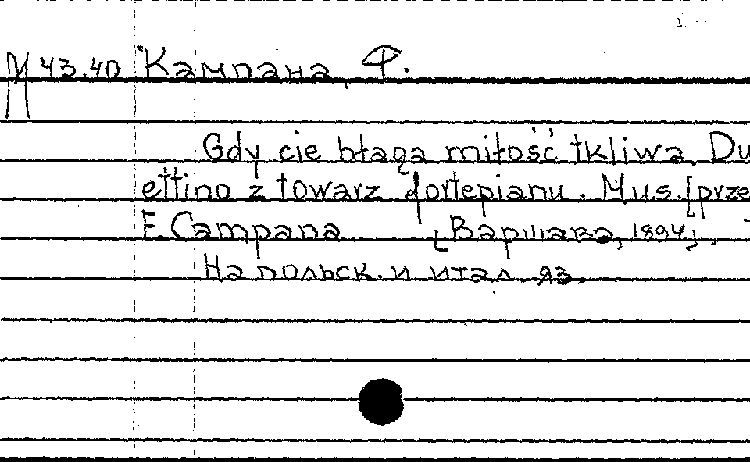 М 43.40 Кампана, Ф.
Gdy cie błaga miłość tkliwa. Du
ettino z towarz. fortepianu. Mus. [prze
F. Campana [Варшава, 1894].
На польск. и итал. яз.